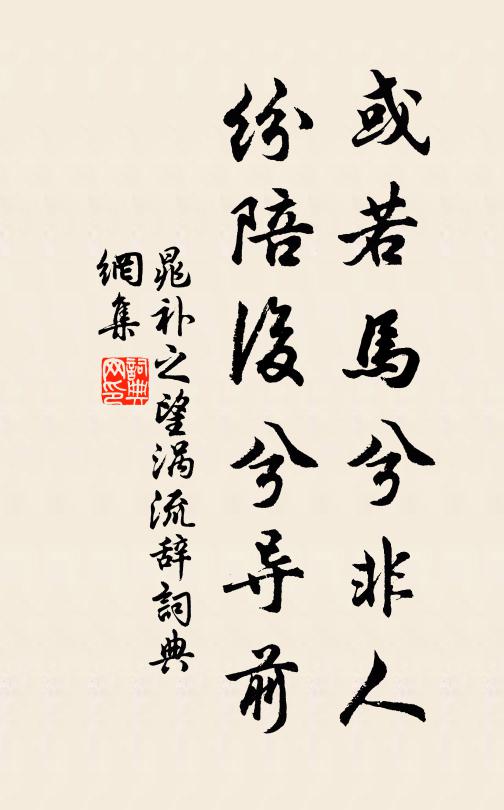 或若馬兮非人
纷陪後兮导前
晁补之望涡流辞詞典
網集
詞典
网印